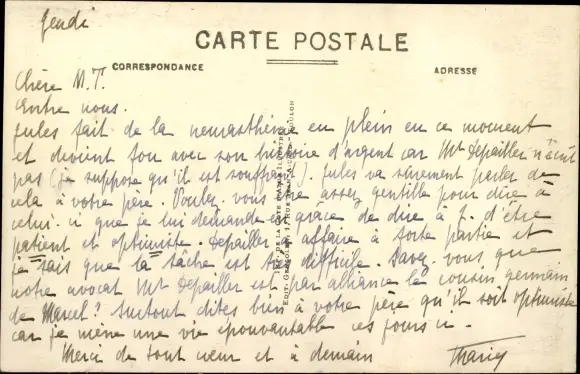 Jeudi
CARTE POSTALE
CORRESPONDANCE
ADRESSE
Chère M.T.
Entre nous.
Jules fait de la neurasthénie en plein en ce moment
et devient fou avec son histoire d'argent car Mt Depailler n'écrit
pas (je suppose qu'il est souffrant). Jules va sûrement parler de
cela à votre père. Voulez-vous être assez gentille pour dire à
celui-ci que je lui demande en grâce de dire à J. d'être
patient et optimiste. Depailler a affaire à forte partie et
je sais que la tâche est très difficile. Savez-vous que
notre avocat Mt Depailler est par alliance le cousin germain
de Marcel? Surtout dites bien à votre père qu'il soit optimiste
car je mène une vie épouvantable ces jours-ci.
Merci de tout cœur et à demain